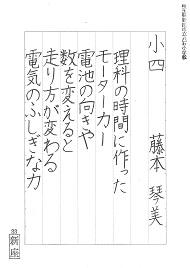 小四　藤本　琴美
理科の時間に作った
モーターカー
電池の向きや
数を変えると
走り方が変わる
電気のふしぎな力
33
新座